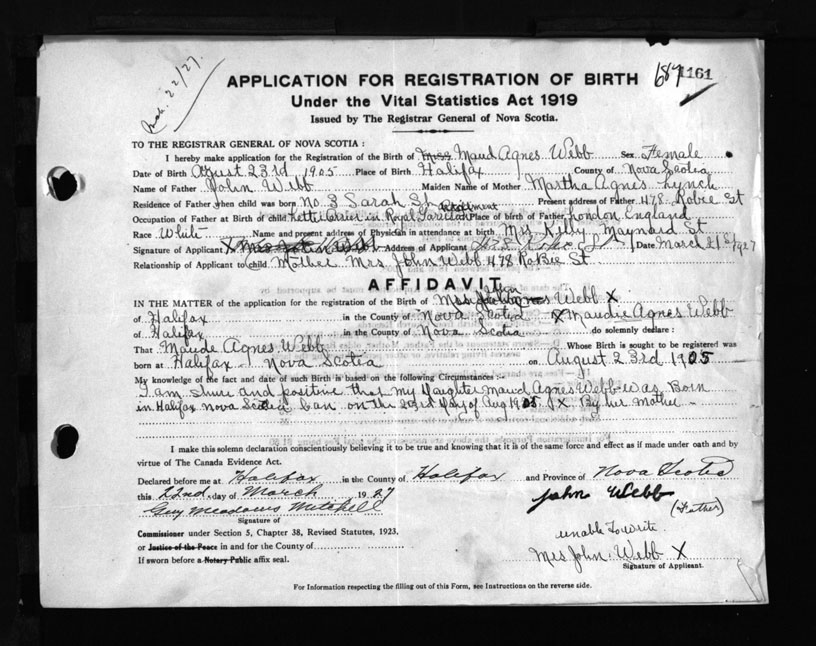 Mch. 22/27.
687 1161
APPLICATION FOR REGISTRATION OF BIRTH
Under the Vital Statistics Act 1919
Issued by The Registrar General of Nova Scotia.
TO THE REGISTRAR GENERAL OF NOVA SCOTIA:
I hereby make application for the Registration of the Birth of Miss Maud Agnes Webb Sex Female
Date of Birth August 23rd 1905 Place of Birth Halifax County of Nova Scotia
Name of Father John Webb Maiden Name of Mother Martha Agnes Lynch
Residence of Father when child was born No 3 Sarah St Present address of Father 478 Robie St
Occupation of Father at Birth of child Letter Carrier in Royal Place of Birth of Father London England
Race White Name and present address of Physician in attendance at birth Mrs Kilby Maynard St
Signature of Applicant X Address of Applicant 478 Robie St Date March 21st/1927
Relationship of Applicant to child Mother Mrs John Webb 478 Robie St.
AFFIDAVIT
IN THE MATTER of the application for the registration of the Birth of Mrs John Webb X
of Halifax in the County of Nova Scotia X Maudie Agnes Webb
of Halifax in the County of Nova Scotia do solemnly declare:
That Maude Agnes Webb Whose Birth is sought to be registered was
born at Halifax Nova Scotia on August 23rd 1905
My knowledge of the fact and date of such Birth is based on the following Circumstances:-
I am shure and positive that my Daughter Maud Agnes Webb was Born
in Halifax Nova Scotia Can on the 23rd Day of Aug 1905 X By her Mother
I make this solemn declaration conscientiously believing it to be true and knowing that it is of the same force and effect as if made under oath and by
virtue of The Canada Evidence Act.
Declared before me at Halifax in the County of Halifax and Province of Nova Scotia
this 22nd day of March 1927 John Webb
Guy Meadows Mitchell (Father)
Signature of
Commissioner under Section 5, Chapter 38, Revised Statutes, 1923, unable to write
or Justice of the Peace in and for the County of
Mrs John Webb X
If sworn before a Notary Public affix seal. Signature of Applicant.
For Information respecting the filling out of this Form, see Instructions on the reverse side.